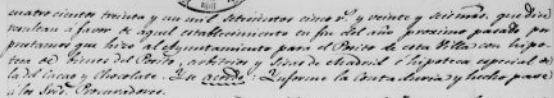 cuatrocientos treinta y un mil setecientos cinco r.s y veinte y seis mrs. que dice
resultan a favor de aquel establecimiento en fin del año proximo pasado por
prestamos que hizo al Ayuntamiento para el Posito de esta Villa con hipo-
teca de vienes del Posito, arbitrios y Sisas de Madrid e hipoteca especial de
la del Cacao y Chocolate. Y se acordó: Ynforme la Contaduria y hecho pase
a los Sres. Procuradores.